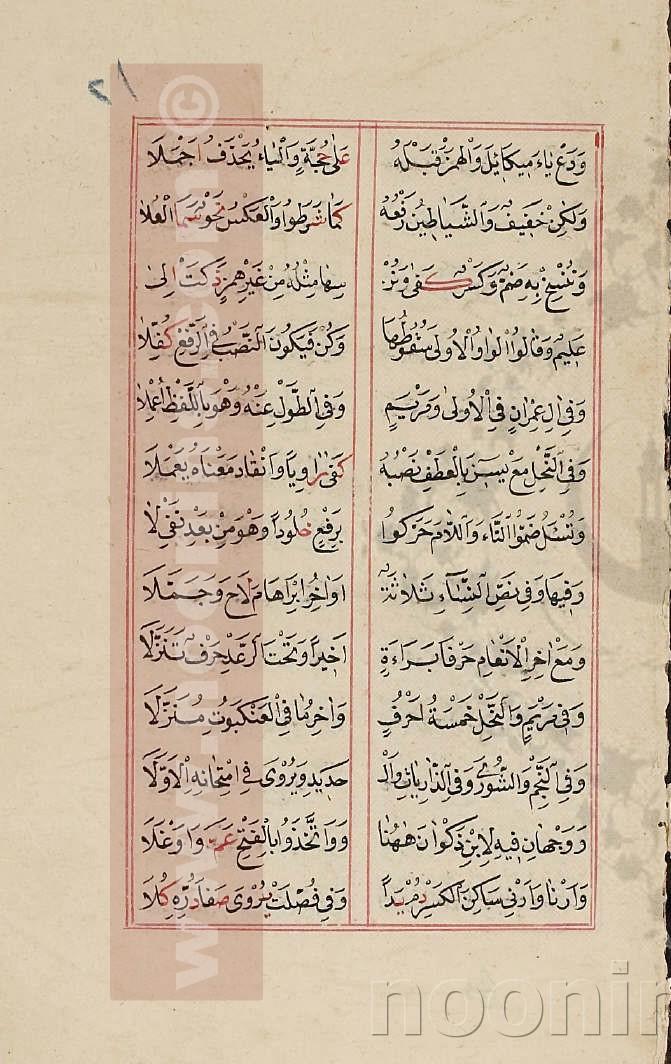 ٢١
وَدَعْ يَاءَ مِيكَائِيلَ وَالْهَمْزَ قَبْلَهُ عَلَى حُجَّةٍ وَالْيَاءُ يُحْذَفُ اَجْمَلَا
وَلَكِنْ خَفِيفٌ وَالشَّيَاطِينُ رَفْعُهُ كَمَا شَرَطُوا وَالْعَكْسُ نَحْوٌ سَمَا الْعُلَا
وَنُنْسِخْ بِهِ ضَمٌّ وَكَسْرٌ كَفَى وَنُنْ سِهَا مِثْلُهُ مِنْ غَيْرِ هَمْزٍ ذَكَتْ اِلَى
عَلِيمٌ وَقَالُوا الْوَاوُ الْاُولَى سُقُوطُهَا وَكُنْ فَيَكُونُ النَّصْبُ فِي الرَّفْعِ كُفِّلَا
وَفِي الِ عِمْرَانٍ فِي الْاُولَى وَمَرْيَمٍ وَفِي الطَّوْلِ عَنْهُ وَهْوَ بِاللَّفْظِ اُعْمِلَا
وَفِي النَّحْلِ مَعْ يسٓ بِالْعَطْفِ نَصْبُهُ كَفَى رَاوِيًا وَانْقَادَ مَعْنَاهُ يَعْمُلَا
وَتُسْئَلُ ضَمُّوا التَّاءَ وَاللَّامَ حَرَّكُوا بِرَفْعٍ خُلُوداً وَهْوَ مِنْ بَعْدِ نَفْيِ لَا
وَفِيهَا وَفِي نَصِّ النِّسَاءِ ثَلَاثَةٌ اَوَاخِرُ اِبْرَاهَامَ لَاحَ وَجَمَّلَا
وَمَعْ اخِرِ الْاَنْعَامِ حَرْفَا بَرَاءَةٍ اَخِيرًا وَتَحْتَ الرَّعْدِ حَرْفٌ تَنَزَّلَا
وَفِي مَرْيَمٍ وَالنَّحْلِ خَمْسَةُ اَحْرُفٍ وَاخِرُ مَا فِي الْعَنْكَبُوتِ مُنَزَّلَا
وَفِي النَّجْمِ وَالشُّورَى وَفِي الذَّارِيَاتِ وَالْ حَدِيدِ وَيُرْوَى فِي امْتِحَانِهِ الْاَوَّلَا
وَوَجْهَانِ فِيهِ لِابْنِ ذَكْوَانَ هَهُنَا وَوَاتَّخَذُوا بِالْفَتْحِ عَمَّ وَاَوْغَلَا
وَاَرْنَا وَاَرْنِي سَاكِنَ الْكَسْرِ دُمْ يَدًا وَفِي فُصِّلَتْ يُرْوَى صَفَا دَرِّهِ كُلَا
www.noonin
©
noonin